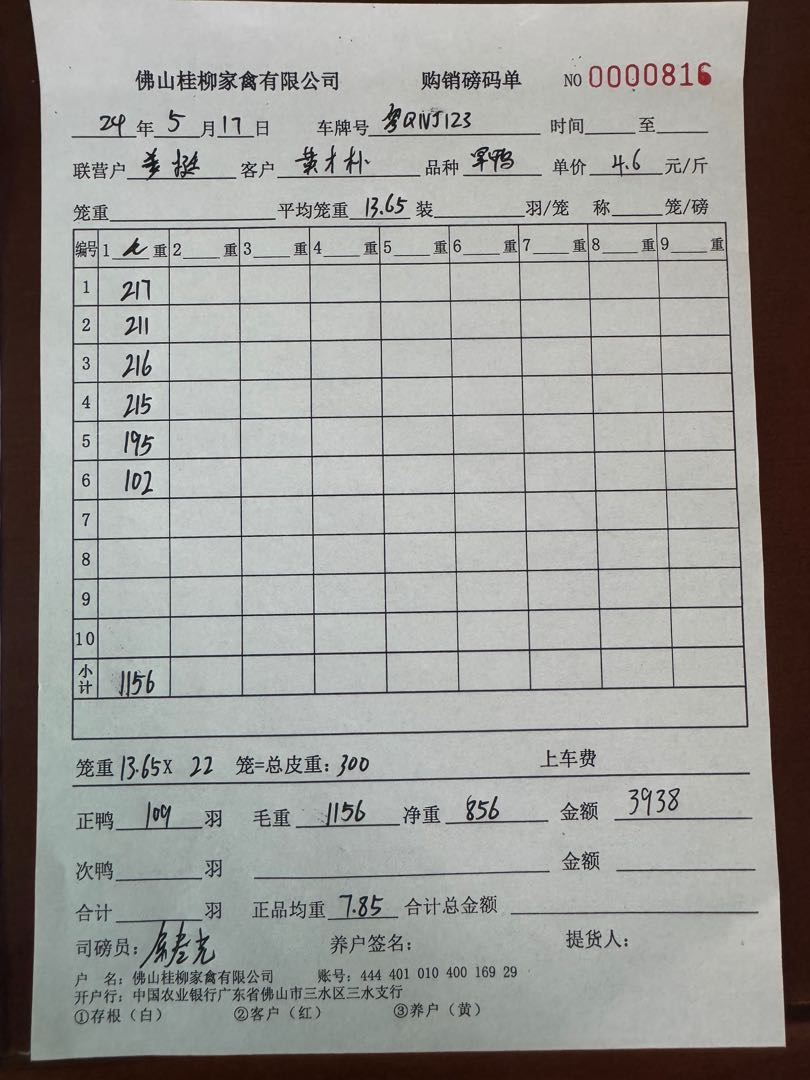 佛山桂柳家禽有限公司 购销磅码单 NO 0000816
24 年 5 月 17 日 车牌号 粤QNJ123 时间 至
联营户 客户 黄才朴 品种 单价 4.6 元/斤
笼重 平均笼重 13.65 装 羽/笼 称 笼/磅
编号 1 重 2 重 3 重 4 重 5 重 6 重 7 重 8 重 9 重
1 217
2 211
3 216
4 215
5 195
6 102
7
8
9
10
小计 1156
笼重 13.65X 22 笼=总皮重: 300 上车费
正鸭 109 羽 毛重 1156 净重 856 金额 3938
次鸭 羽 金额
合计 羽 正品均重 7.85 合计总金额
司磅员: 养户签名: 提货人:
户 名: 佛山桂柳家禽有限公司 账号: 444 401 010 400 169 29
开户行: 中国农业银行广东省佛山市三水区三水支行
①存根(白) ②客户(红) ③养户(黄)